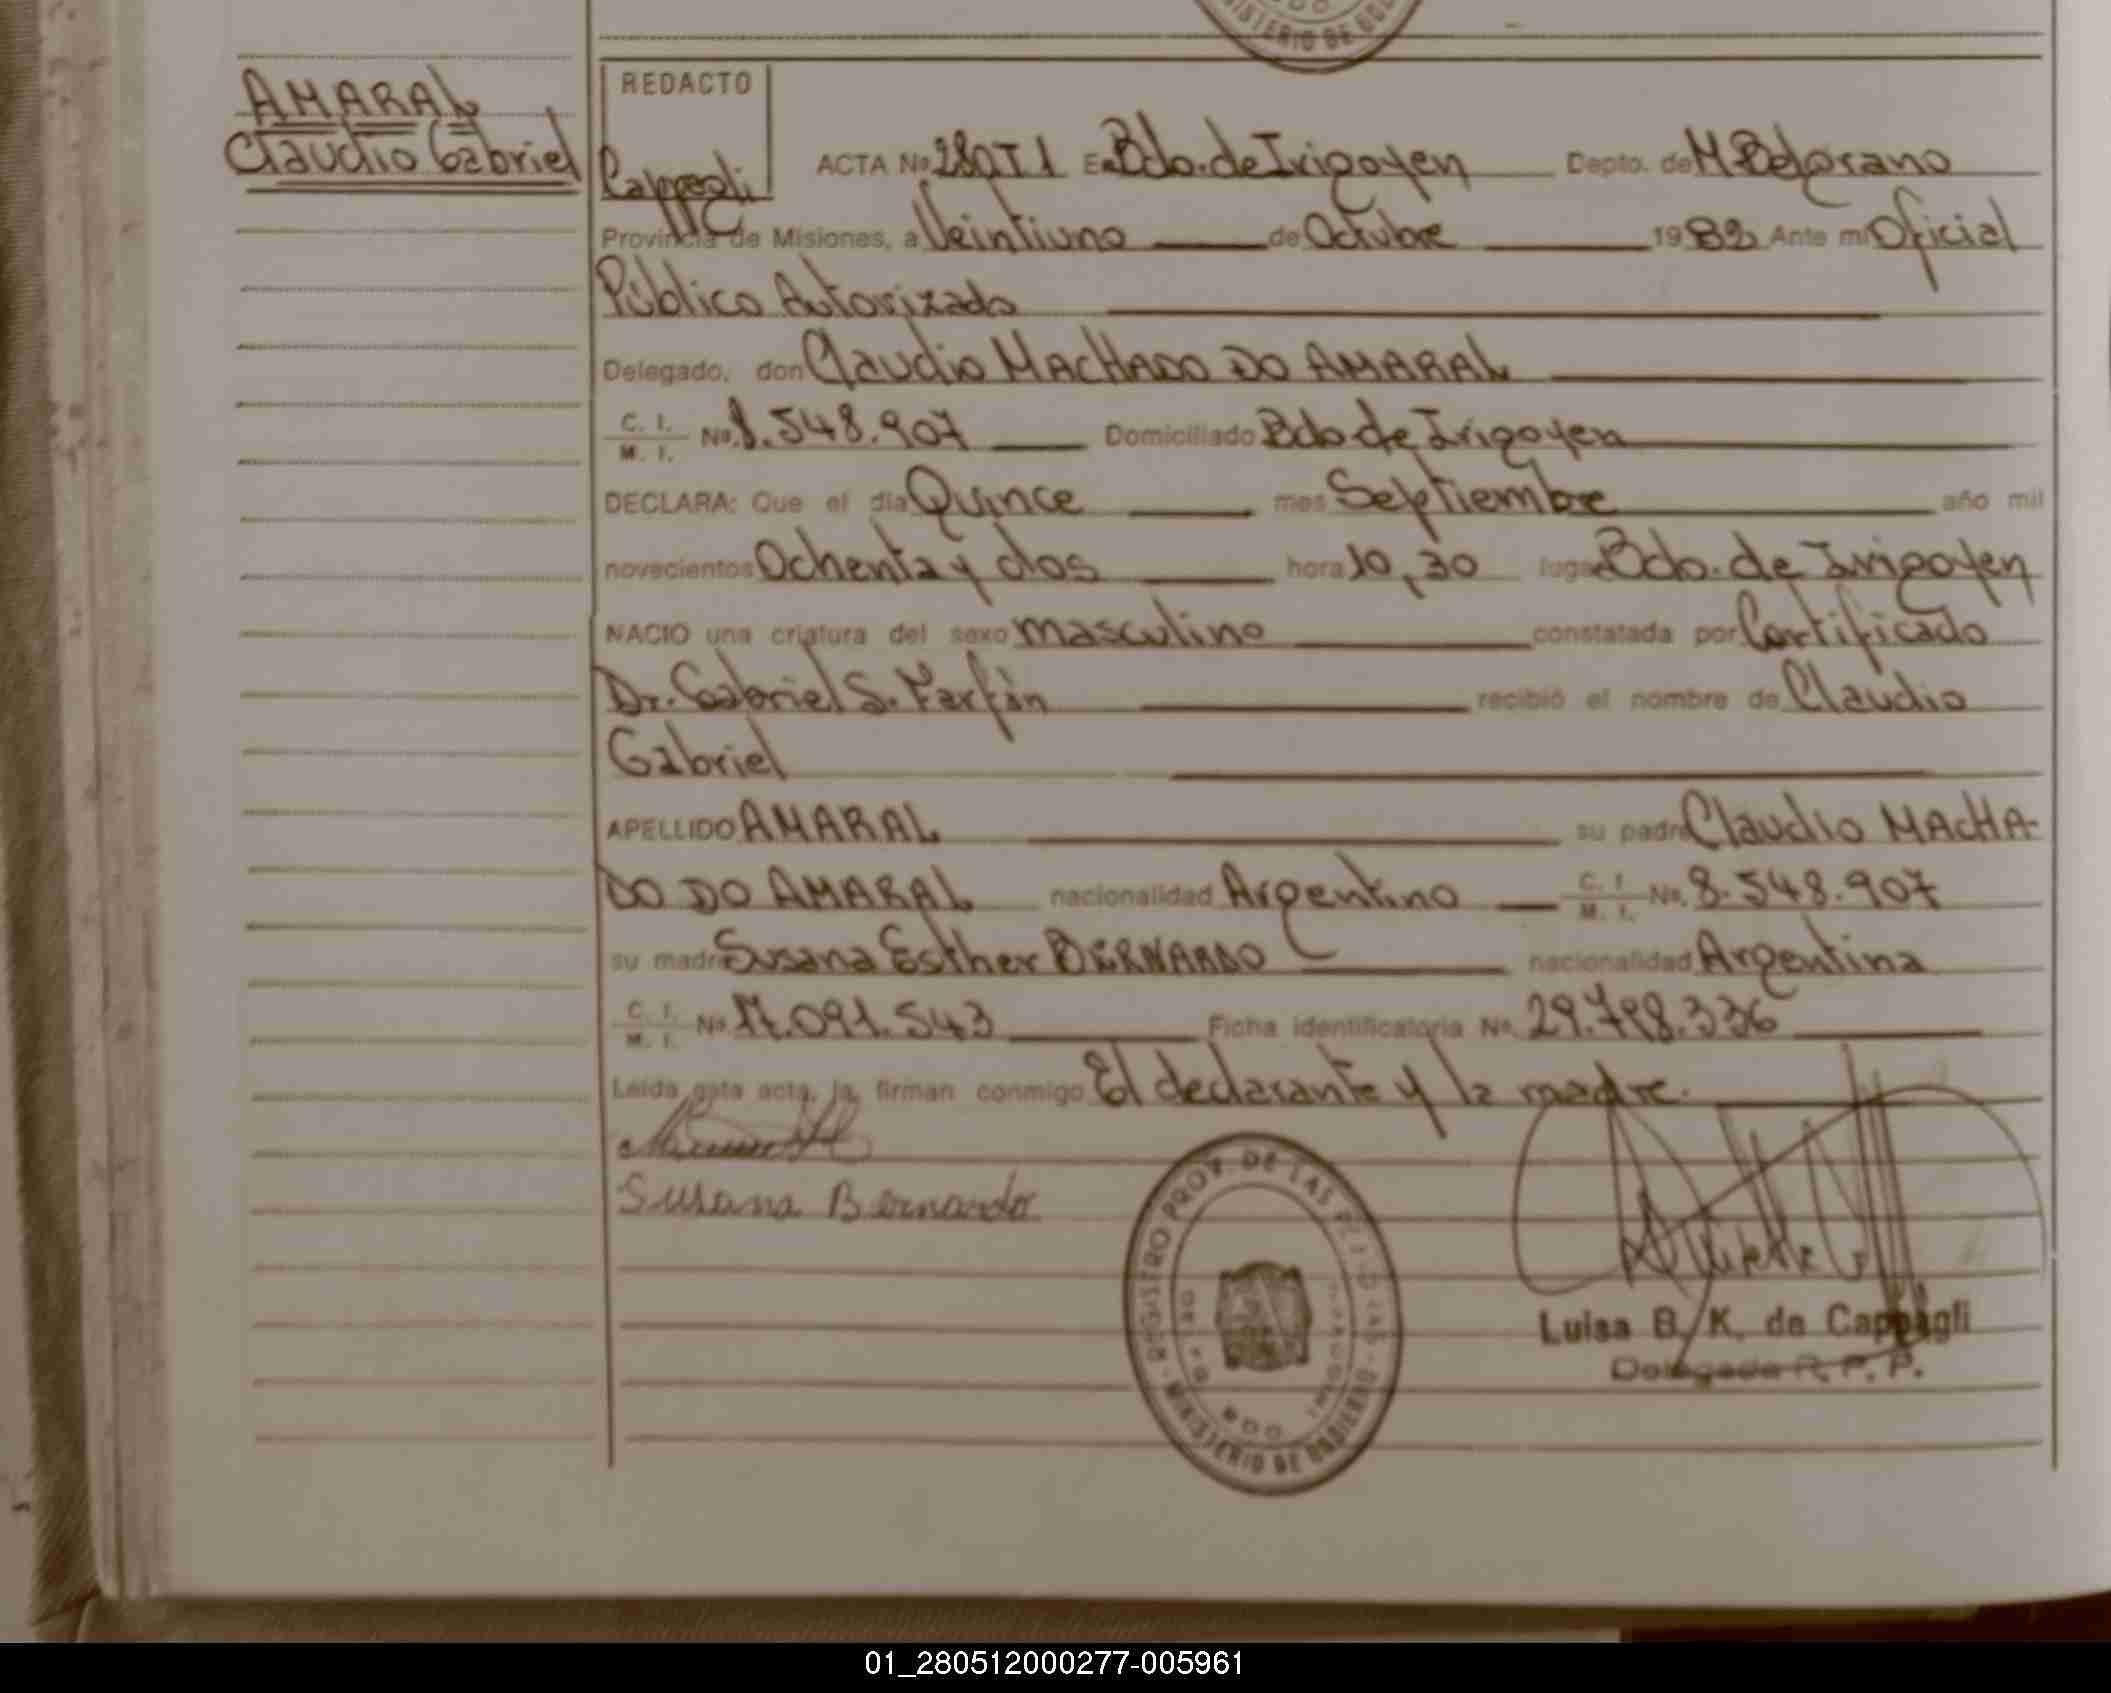 MINISTERIO DE GOB
AMARAL
Claudio Gabriel
REDACTO
Cappagli
ACTA No 280T1 En Bdo. de Irigoyen Depto. de M Belgrano
Provincia de Misiones, a Veintiuno de Octubre 1982 Ante mi Oficial
Público Autorizado
Delegado, don Claudio MACHADO DO AMARAL
C. I.
M. I. No. 8.548.907 Domiciliado Bdo de Irigoyen
DECLARA: Que el dia Quince mes Septiembre año mil
novecientos Ochenta y dos hora 10,30 lugar Bdo. de Irigoyen
NACIO una criatura del sexo masculino constatada por Certificado
Dr. Gabriel S. Farfán recibió el nombre de Claudio
Gabriel
APELLIDO AMARAL su padre Claudio MACHA-
DO DO AMARAL nacionalidad Argentino C. I. M. I. No. 8.548.907
su madre Susana Esther BERNARDO nacionalidad Argentina
C. I.
M. I. No 17.091.543 Ficha identificatoria No. 29.798.336
Leida esta acta, la firman conmigo El declarante y la madre.
Susana Bernardo
REGISTRO PROV. DE LAS PERSONAS
MINISTERIO DE GOBIERNO
Luisa B. K. de Cappagli
Delegada R. P. P.
01_280512000277-005961